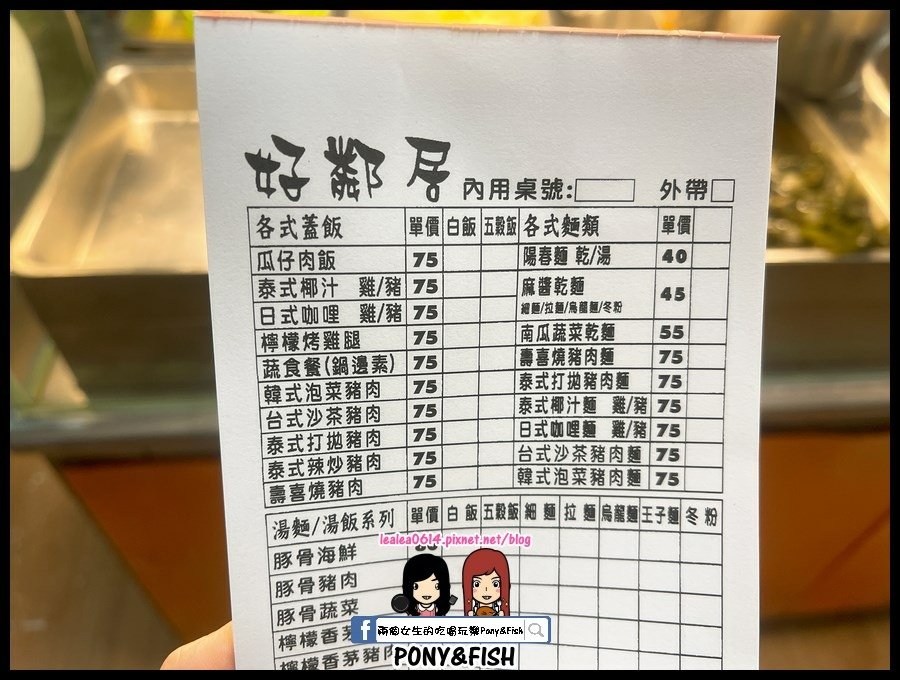 好鄰居 內用桌號: 外帶
各式蓋飯 單價 白飯 五穀飯 各式麵類 單價
瓜仔肉飯 75 陽春麵 乾/湯 40
泰式椰汁 雞/豬 75 麻醬乾麵 45
細麵/拉麵/烏龍麵/冬粉
日式咖哩 雞/豬 75
檸檬烤雞腿 75 南瓜蔬菜乾麵 55
蔬食餐(鍋邊素) 75 壽喜燒豬肉麵 75
韓式泡菜豬肉 75 泰式打拋豬肉麵 75
台式沙茶豬肉 75 泰式椰汁麵 雞/豬 75
泰式打拋豬肉 75 日式咖哩麵 雞/豬 75
泰式辣炒豬肉 75 台式沙茶豬肉麵 75
壽喜燒豬肉 75 韓式泡菜豬肉麵 75
湯麵/湯飯系列 單價 白飯 五穀飯 細麵 拉麵 烏龍麵 王子麵 冬粉
lealea0614.pixnet.net/blog
豚骨海鮮
豚骨豬肉
豚骨蔬菜
檸檬香茅
檸檬香茅豬肉
兩個女生的吃喝玩樂Pony&Fish
PONY&FISH